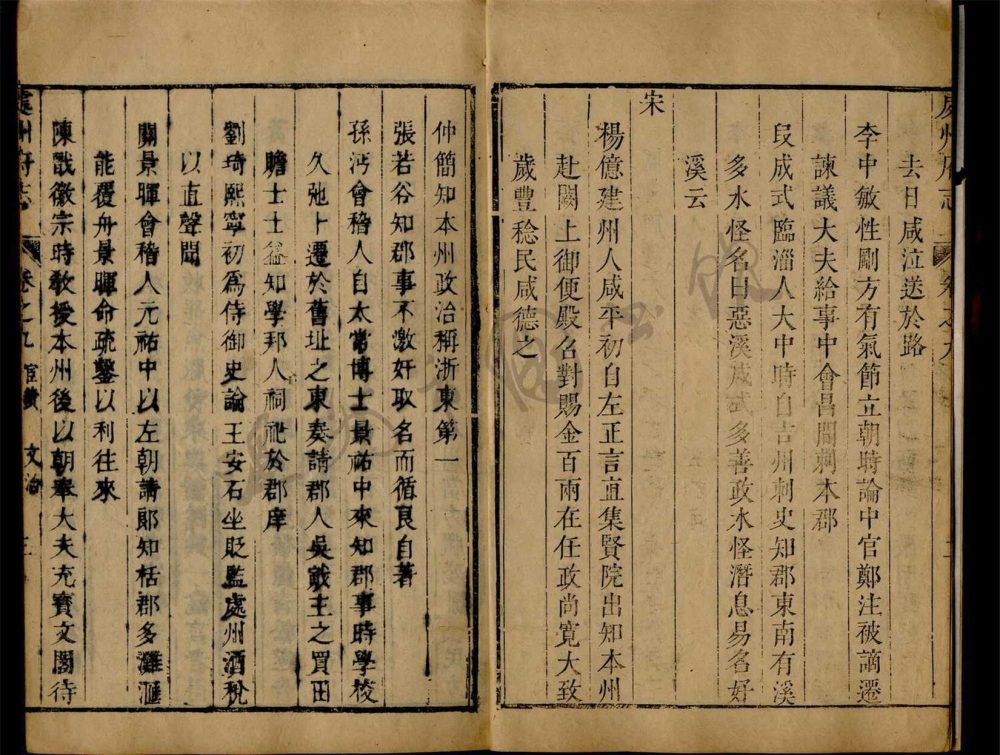 去日咸泣送於路
李中敏性剛方有氣節立朝時論中官鄭注被謫遷
諫議大夫給事中會昌間刺本郡
段成式臨淄人大中時自吉州刺史知郡東南有溪
多水怪名曰惡溪成式多善政水怪潛息易名好
溪云
宋
楊億建州人咸平初自左正言直集賢院出知本州
赴闕上御便殿名對賜金百兩在任政尚寬大致
歲豐稔民咸德之
仲簡知本州政治稱浙東第一
張若谷知郡事不激奸取名而循良自著
孫沔會稽人自太常博士景祐中來知郡事時學校
久弛卜遷於舊址之東奏請郡人吳戩主之買田
贍士士益知學邦人祠祀於郡庠
劉琦熙寧初爲侍御史論王安石坐貶監處州酒稅
以直聲聞
關景暉會稽人元祐中以左朝請郎知栝郡多灘滙
能覆舟景暉命疏鑿以利往來
陳戩徽宗時敎授本州後以朝奉大夫充寶文閣待
處州府志 卷之九 宦績 文治 三